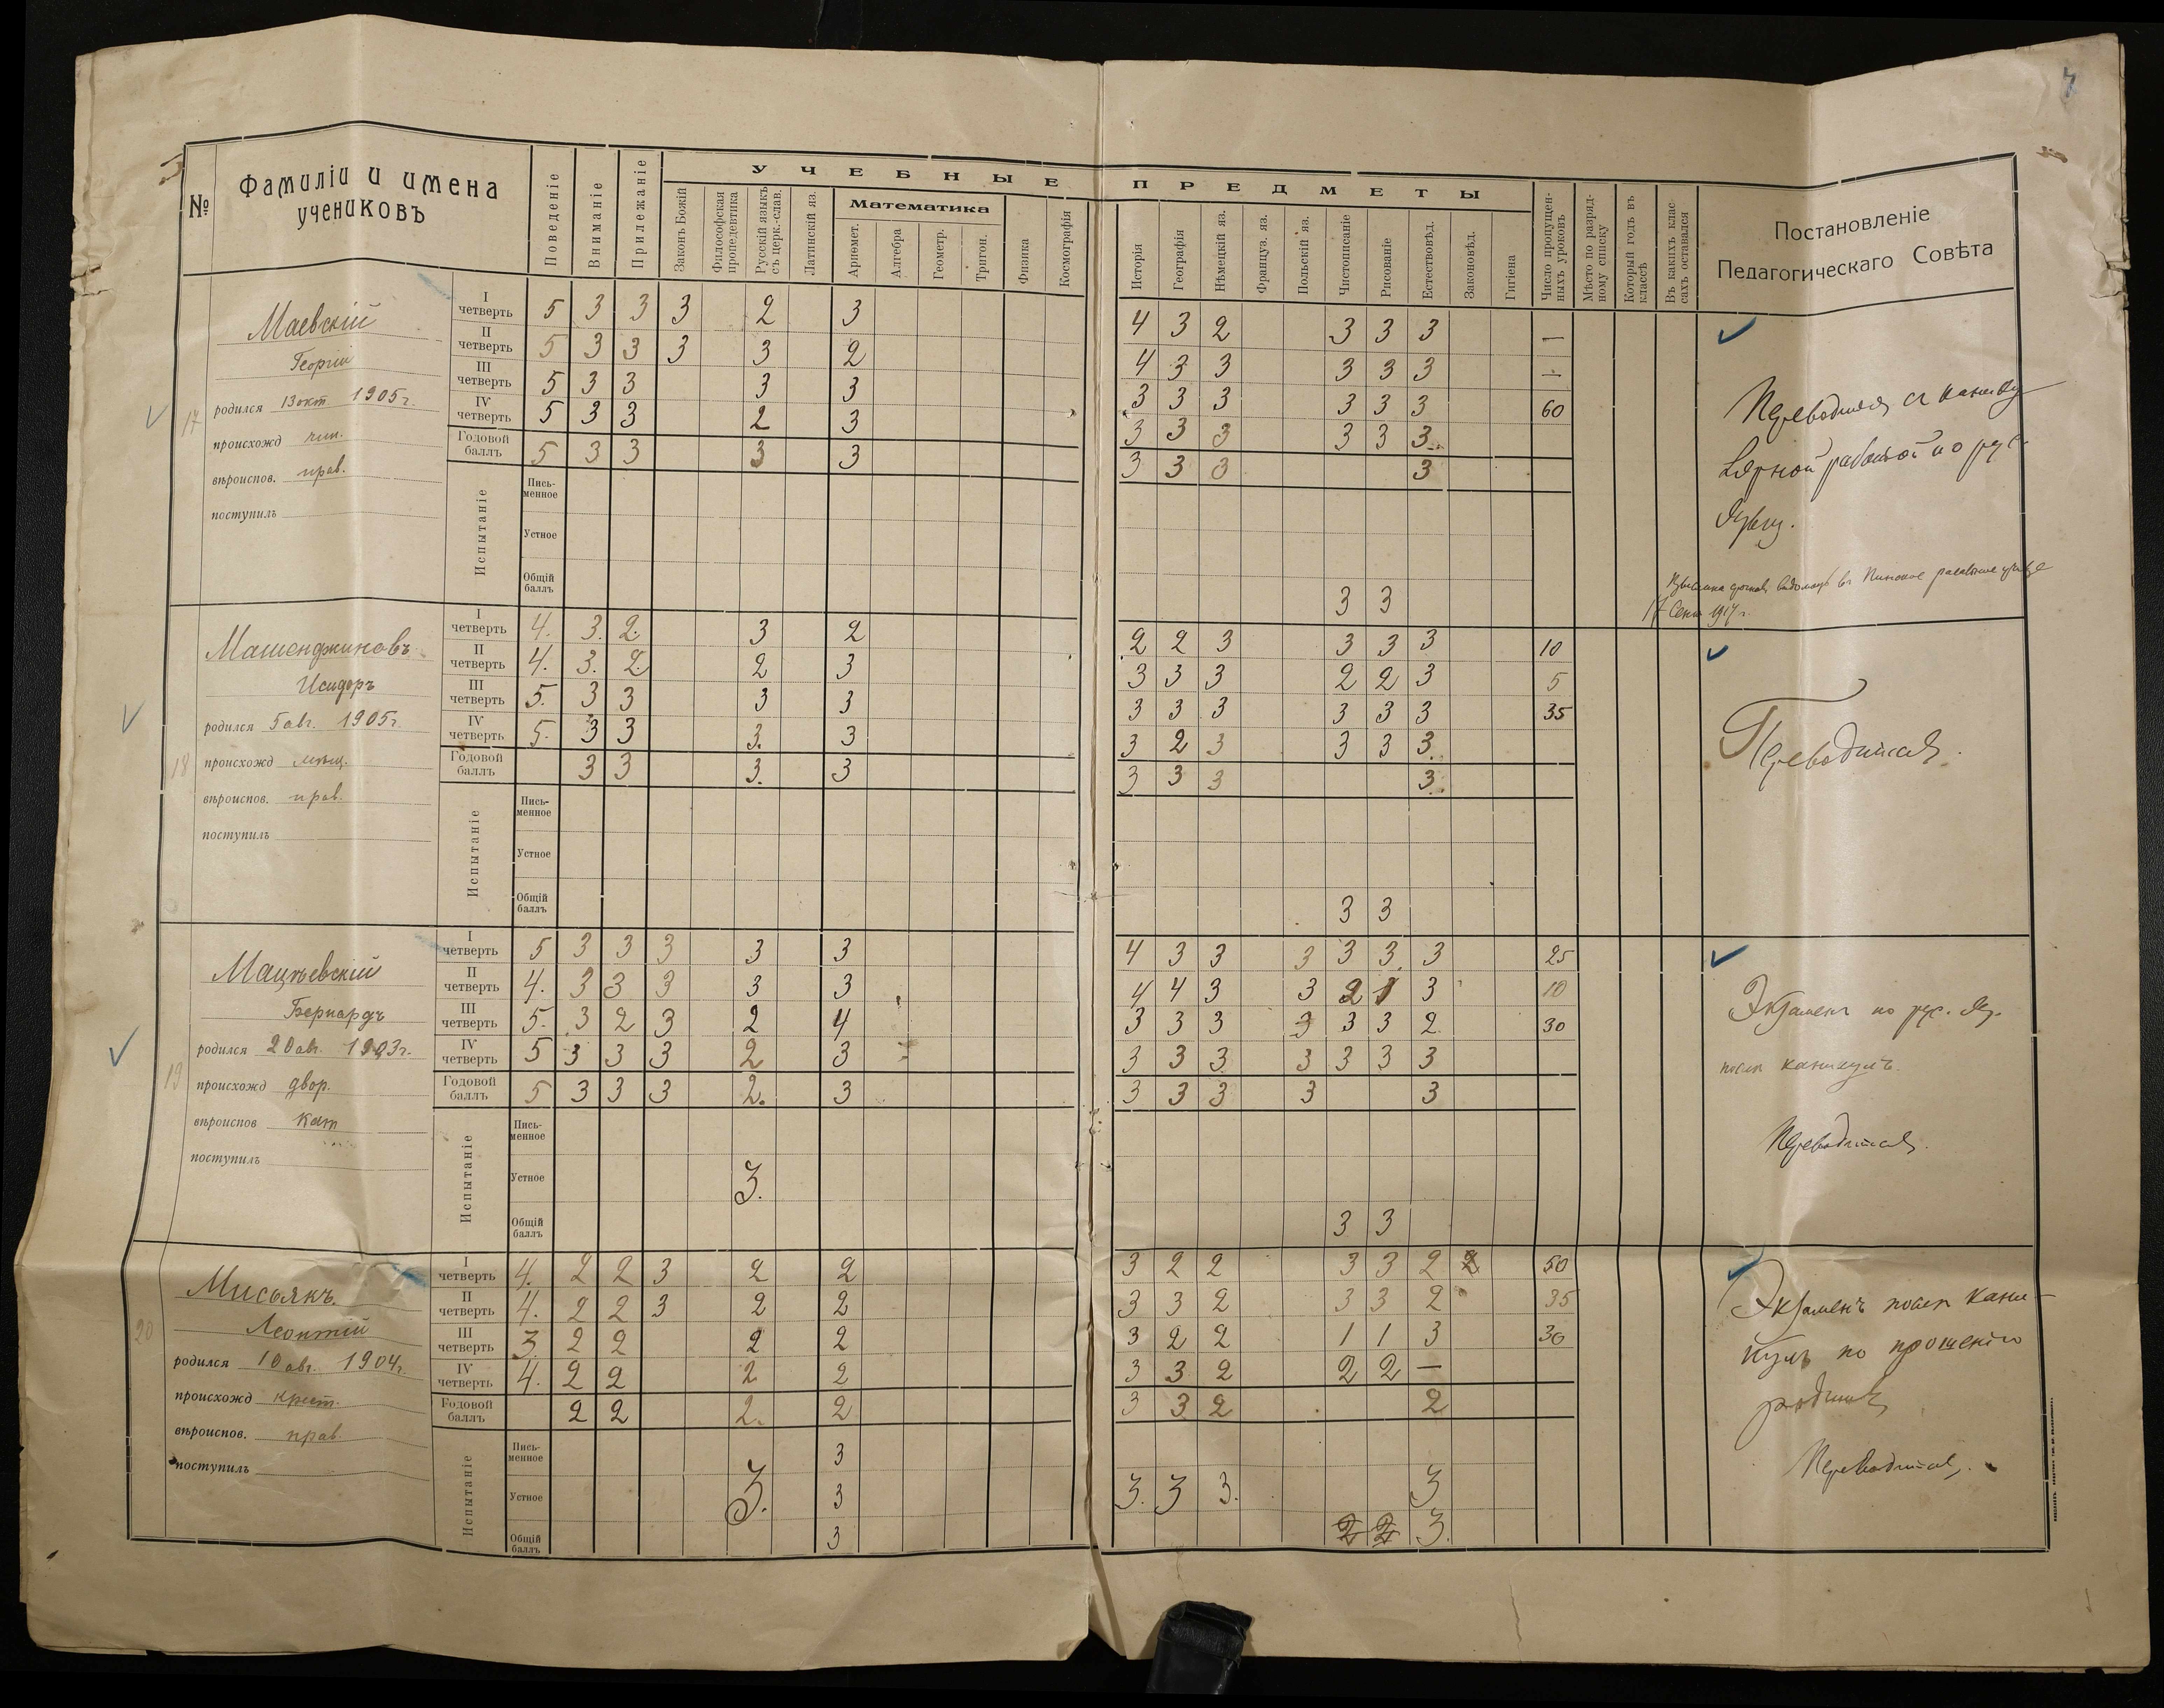 №
Фамиліи и имена
учениковъ
Поведеніе
Вниманіе
Прилежаніе
УЧЕБНЫЕ ПРЕДМЕТЫ
Законъ Божій
Философская
пропедевтика
Русскій языкъ
съ церк.-слав.
Латинскій яз.
Математика
Ариѳмет.
Алгебра
Геометр.
Тригон.
Физика
Космографія
Исторія
Географія
Нѣмецкій яз.
Француз. яз.
Польскій яз.
Чистописаніе
Рисованіе
Естествовѣд.
Законовѣд.
Гигіена
Число пропущен-
ныхъ уроковъ
Мѣсто по разряд-
ному списку
Который годъ въ
классѣ
Въ какихъ клас-
сахъ оставался
Постановленіе
Педагогическаго Совѣта
17
Маевскій
Георгій
родился 13 окт. 1905 г.
происхожд чин.
вѣроиспов. прав.
поступилъ
I четверть 5 3 3 3 2 3 4 3 2 3 3 3 —
II четверть 5 3 3 3 3 2 4 3 3 3 3 3 —
III четверть 5 3 3 3 3 3 3 3 3 3 3 60
IV четверть 5 3 3 2 3 3 3 3 3 3 3
Годовой баллъ 5 3 3 3 3 3 3 3 3
Испытаніе
Пись-
менное
Устное
Общій баллъ 3 3
Переводится съ
работой по рус.
языку.
17 Сент 1917 г.
18
Машенджиновъ
Исидоръ
родился 5 авг. 1905 г.
происхожд мѣщ.
вѣроиспов. прав.
поступилъ
I четверть 4. 3. 2. 3 2 2 2 3 3 3 3 10
II четверть 4. 3. 2. 2 3 3 3 3 2 2 3 5
III четверть 5. 3 3 3 3 3 3 3 3 3 3 35
IV четверть 5. 3 3 3. 3 3 2 3 3 3 3.
Годовой баллъ 3 3 3. 3 3 3 3 3.
Испытаніе
Пись-
менное
Устное
Общій баллъ 3 3
Переводится.
19
Мацѣевскій
Бернардъ
родился 20 авг. 1903 г.
происхожд двор.
вѣроиспов кат
поступилъ
I четверть 5 3 3 3 3 3 4 3 3 3 3 3 3 25
II четверть 4. 3 3 3 3 3 4 4 3 3 2 1 3 10
III четверть 5. 3 2 3 2 4 3 3 3 3 3 3 2 30
IV четверть 5 3 3 3 2 3 3 3 3 3 3 3 3
Годовой баллъ 5 3 3 3 2. 3 3 3 3 3 3
Испытаніе
Пись-
менное
Устное 3.
Общій баллъ 3 3
Экзаменъ по рус. яз.
послѣ каникулъ.
Переводится.
20
Мисьякъ
Леонтій
родился 10 авг. 1904 г.
происхожд крест.
вѣроиспов. прав.
поступилъ
I четверть 4. 2 2 3 2 2 3 2 2 3 3 2 2 50
II четверть 4. 2 2 3 2 2 3 3 2 3 3 2 35
III четверть 3. 2 2 2 2 3 2 2 1 1 3 30
IV четверть 4. 2 2 2 2 3 3 2 2 2 —
Годовой баллъ 2 2 2. 2 3 3 2 2
Испытаніе
Пись-
менное 3
Устное 3. 3 3. 3 3. 3
Общій баллъ 3 2 2 3.
Экзаменъ послѣ кани-
кулъ по прошенію
Переводится.